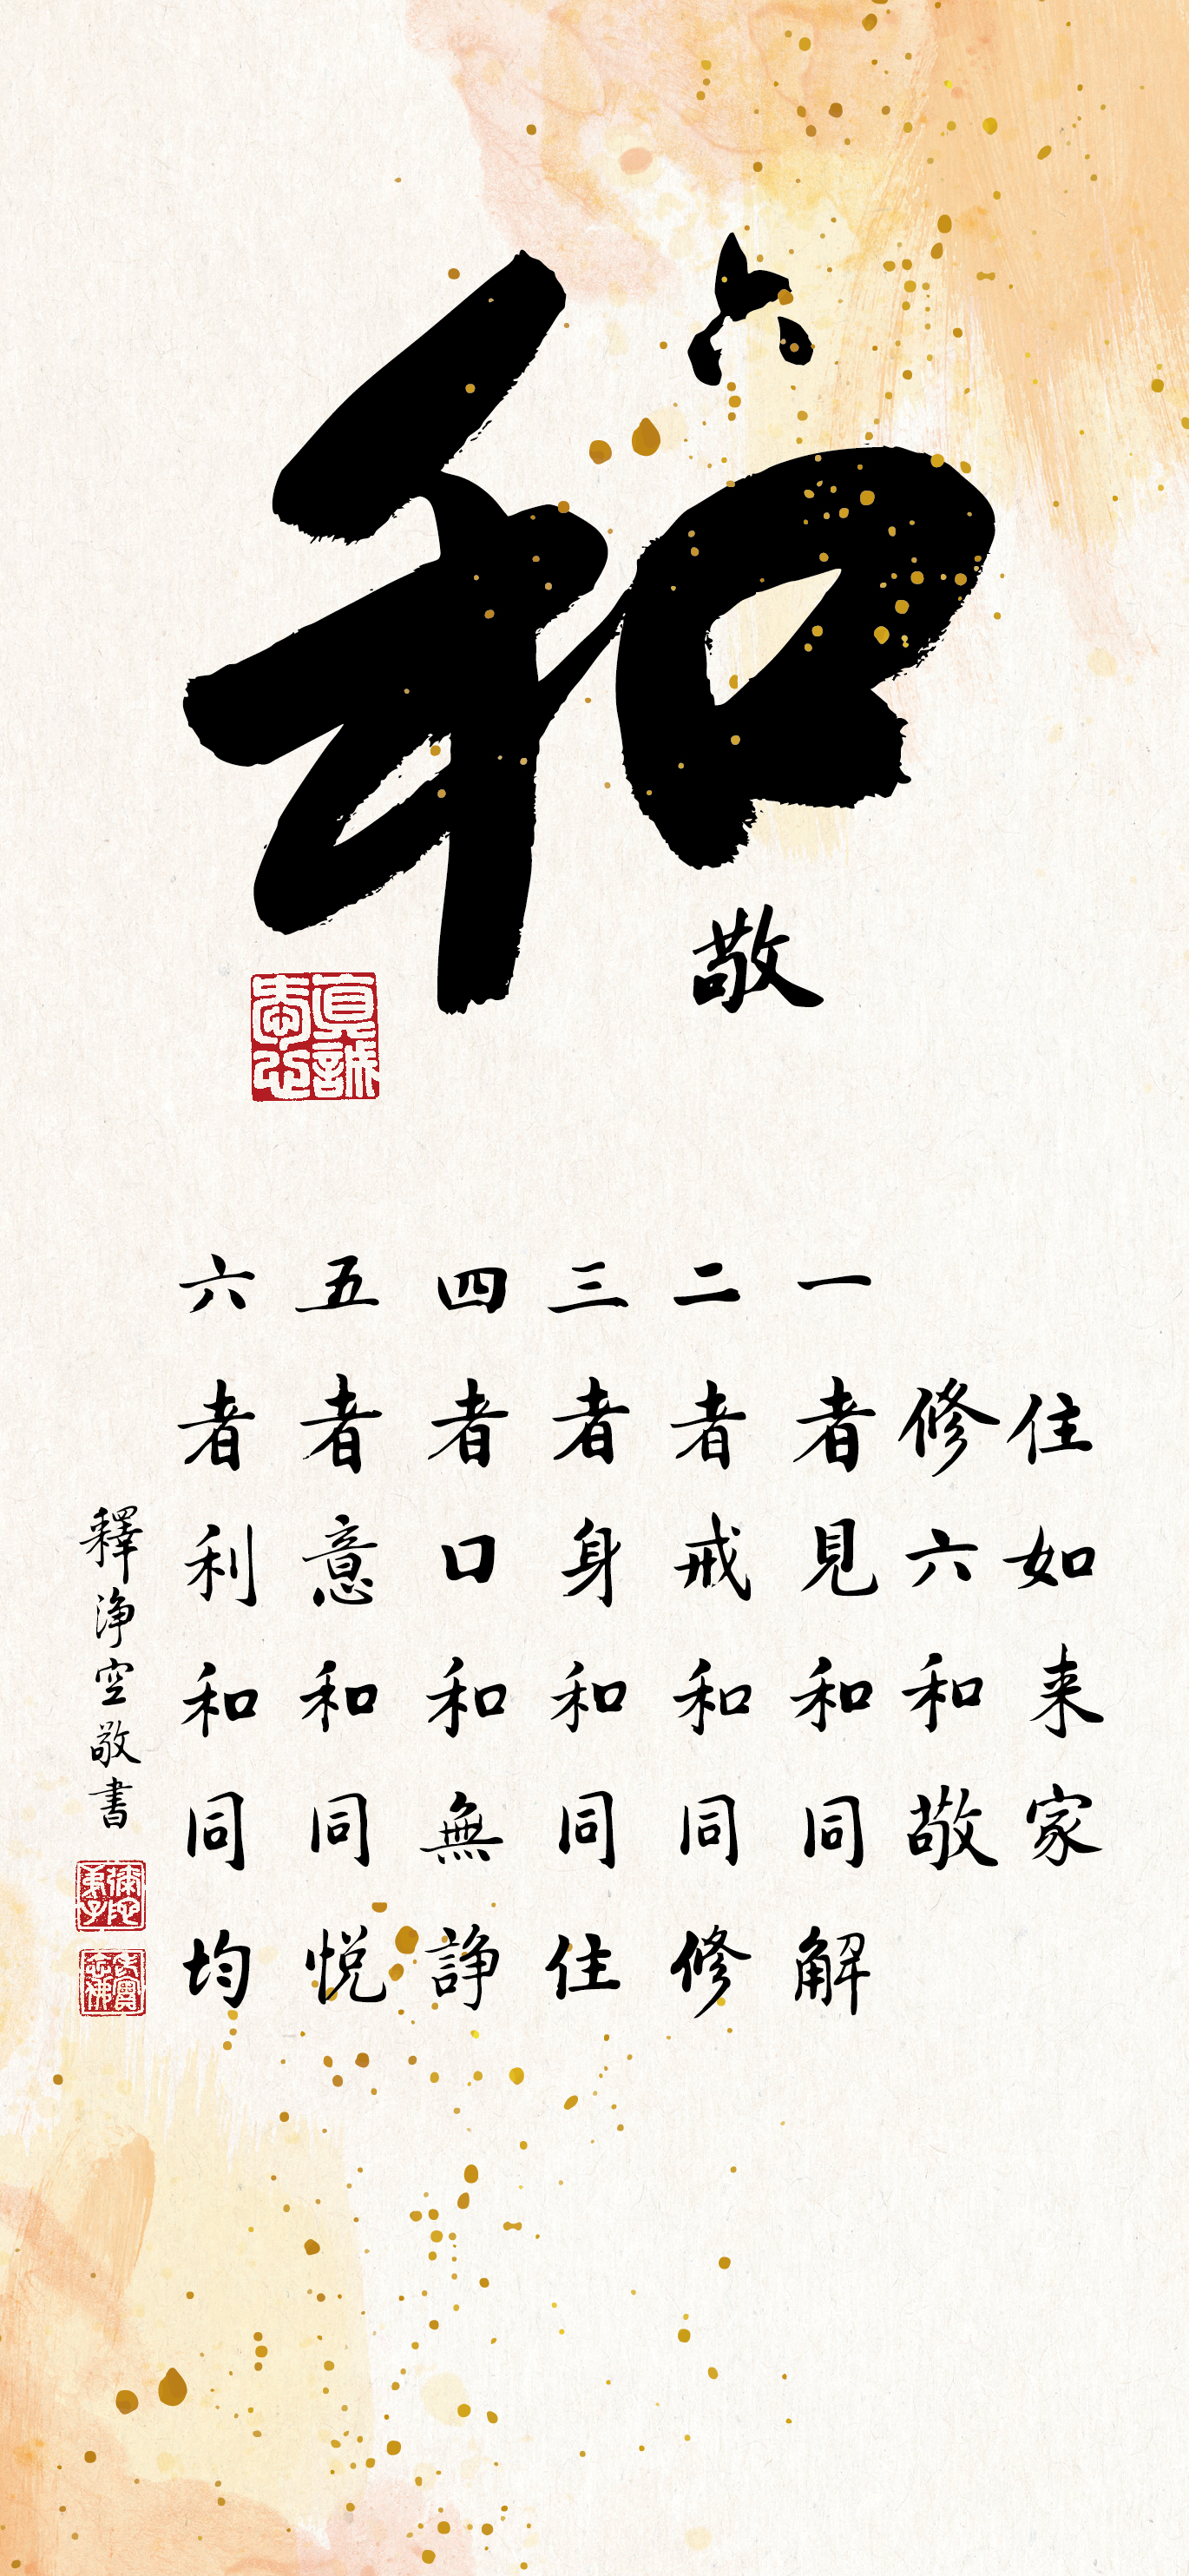 六
和
敬
真誠
住如来家
修六和敬
一者見和同解
二者戒和同修
三者身和同住
四者口和無諍
五者意和同悅
六者利和同均
釋淨空敬書